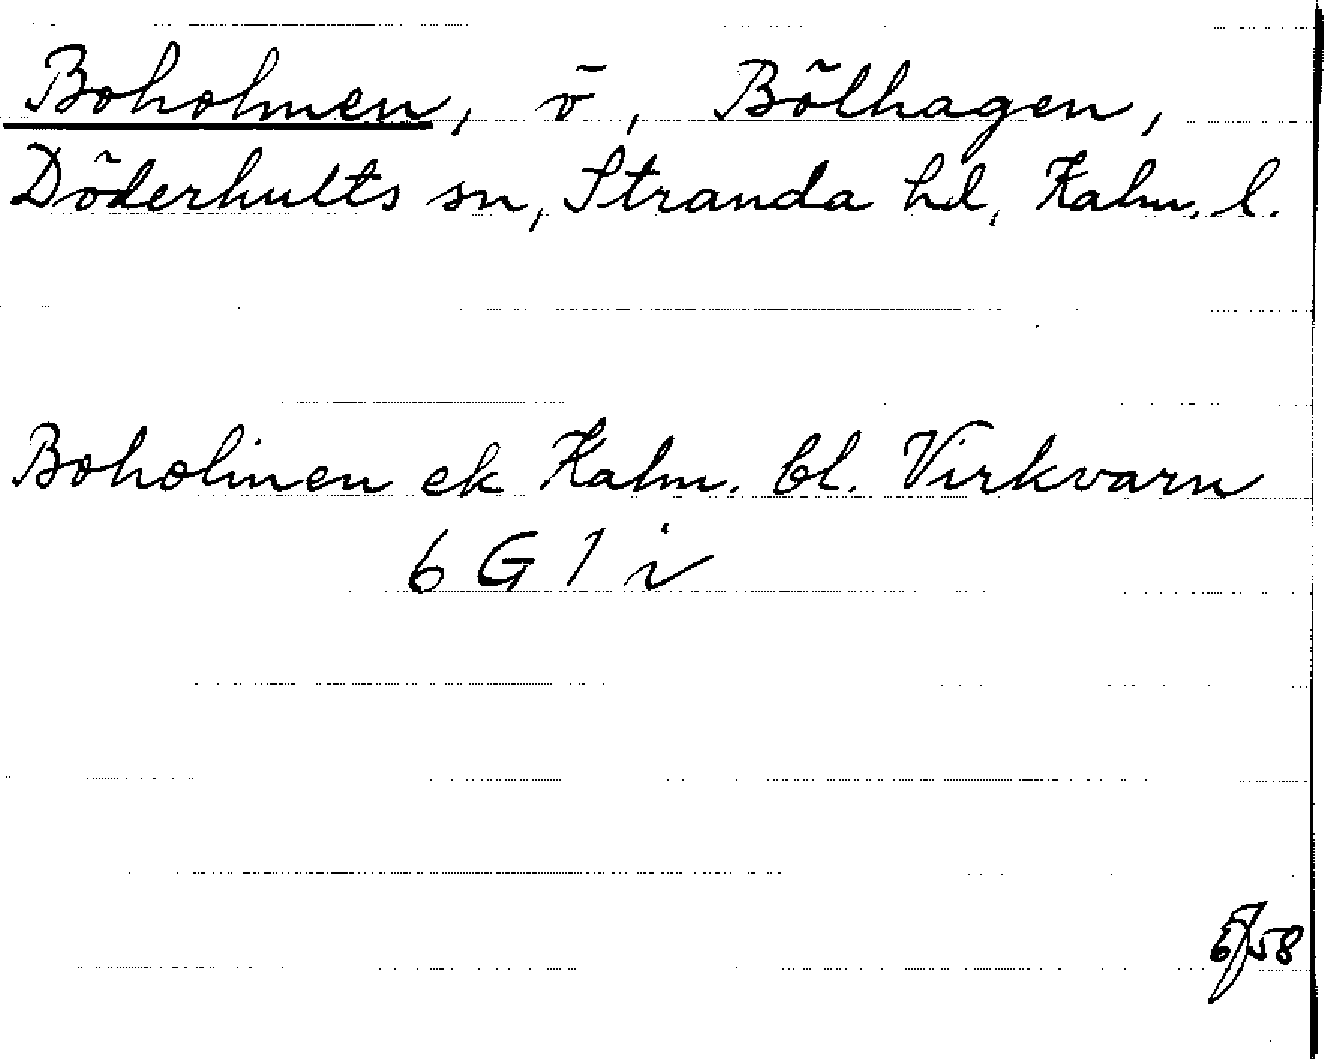 Boholmen, ö, Bölhagen,
Döderhults sn, Stranda hd, Kalm. l.
Boholmen ek Kalm. bl. Virkvarn
6 G 1 i
58